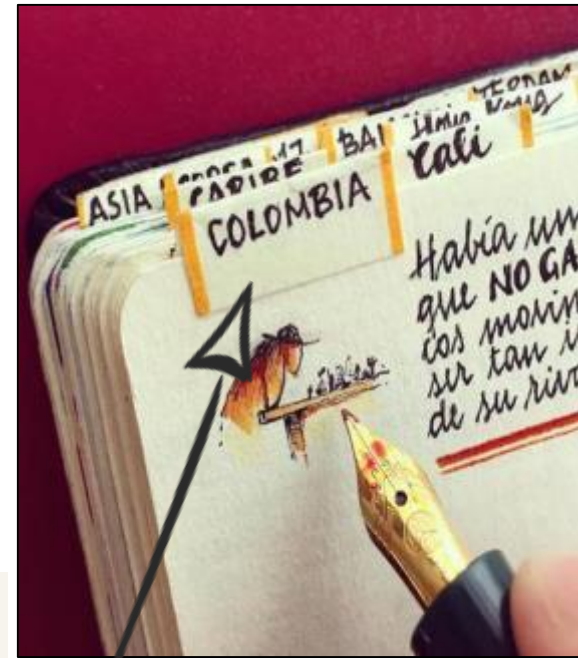 ASIA
CARIBE
COLOMBIA
BA
Cali
Había un
que NO GA
cos movim
ser tan i
de su riv